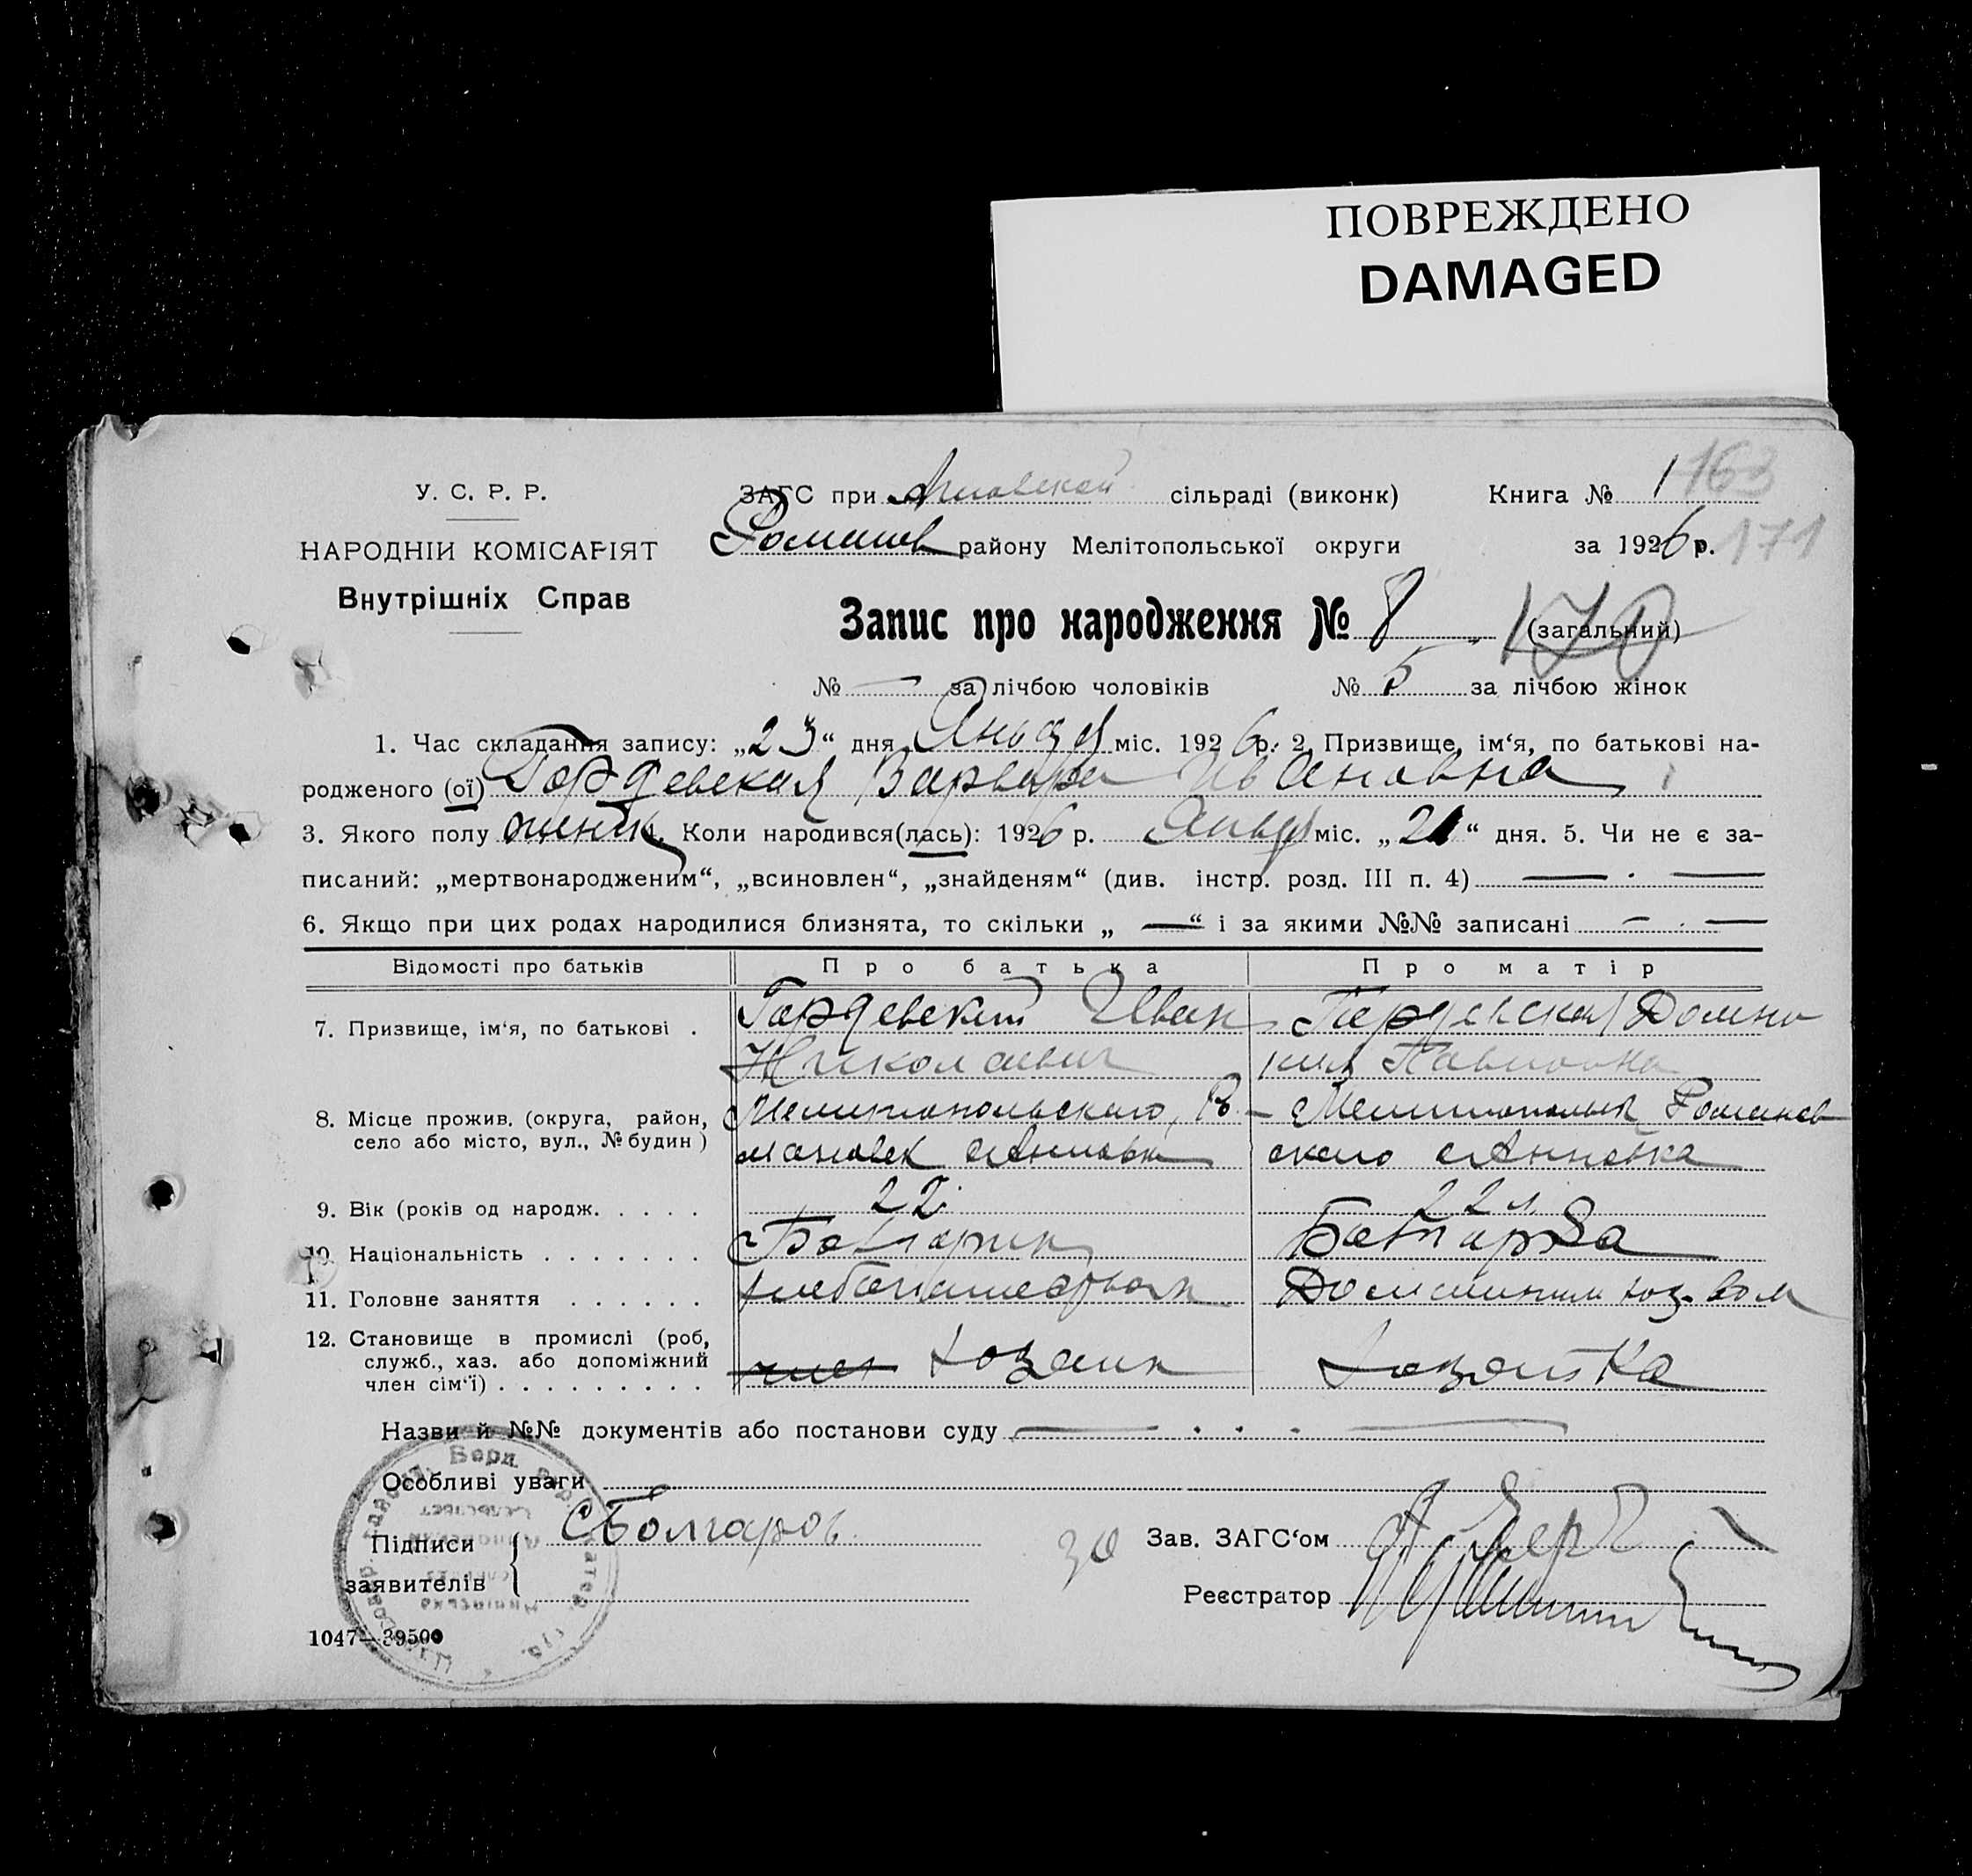 ПОВРЕЖДЕНО
DAMAGED
163
171
У. С. Р. Р.
НАРОДНІЙ КОМІСАРІЯТ
Внутрішніх Справ
ЗАГС при сільраді (виконк) Книга № 1
району Мелітопольської округи за 1926 р.
Запис про народження № 8 (загальний) 170
№ — за лічбою чоловіків № 5 за лічбою жінок
1. Час складання запису: „23“ дня Января міс. 1926 р. 2. Призвище, ім‘я, по батькові на-
родженого (ої) Гордевская Варвара Ивановна
3. Якого полу женск. Коли народився(лась): 1926 р. Января міс. „21“ дня. 5. Чи не є за-
писаний: „мертвонародженим“, „всиновлен“, „знайденям“ (див. інстр. розд. III п. 4) — . —
6. Якщо при цих родах народилися близнята, то скільки „ — “ і за якими №№ записані — . —
Відомості про батьків Про батька Про матір
7. Призвище, ім‘я, по батькові . Гордевский Иван Гордевская Домни
Николаевич кия Павловна
8. Місце прожив. (округа, район, Мелитопольского, Ро- Мелитопольск Романов
село або місто, вул., № будин) мановск Анновка ского Анновка
9. Вік (років од народж. . . . . 22 22 л.
10. Національність . . . . . . . Болгарин Болгарка
11. Головне заняття . . . . . . хлебопашество Домашним хоз-вом
12. Становище в промислі (роб, хозяин хозяйка
служб., хаз. або допоміжний
член сім‘ї) . . . . . . . . .
Назви й №№ документів або постанови суду — . . . —
Особливі уваги
Підписи СБолгаров 30 Зав. ЗАГС‘ом
заявителів Реєстратор
1047—39500